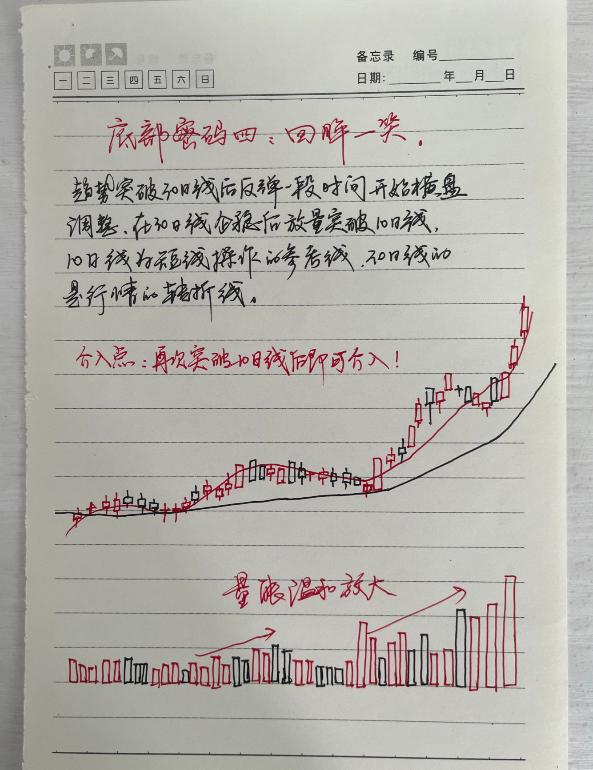 备忘录 编号
一 二 三 四 五 六 日
日期: 年 月 日
底部密码四:回眸一笑.
趋势突破30日线后反弹一段时间开始横盘
调整、在30日线企稳后放量突破10日线,
10日线为短线操作的参考线.30日线的
是行情的转折线。
介入点:再次突破10日线后即可介入!
量能温和放大